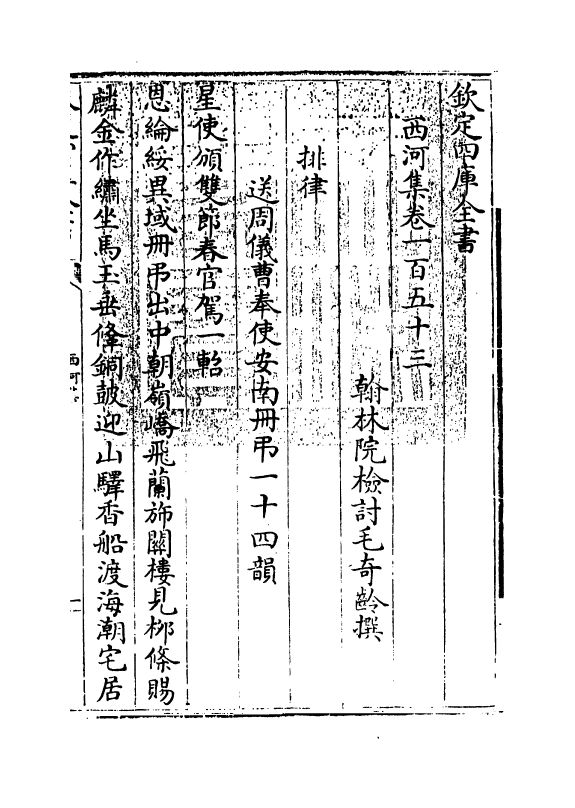 欽定四庫全書
西河集卷一百五十三
翰林院檢討毛奇齡撰
排律
送周儀曹奉使安南冊弔一十四韻
星使頒雙節春官駕一軺
恩綸綏異域冊弔出中朝嶺嶠飛蘭斾闗樓見栁條賜
麟金作繡坐馬玉垂絛銅皷迎山驛香船渡海潮宅居
西河集